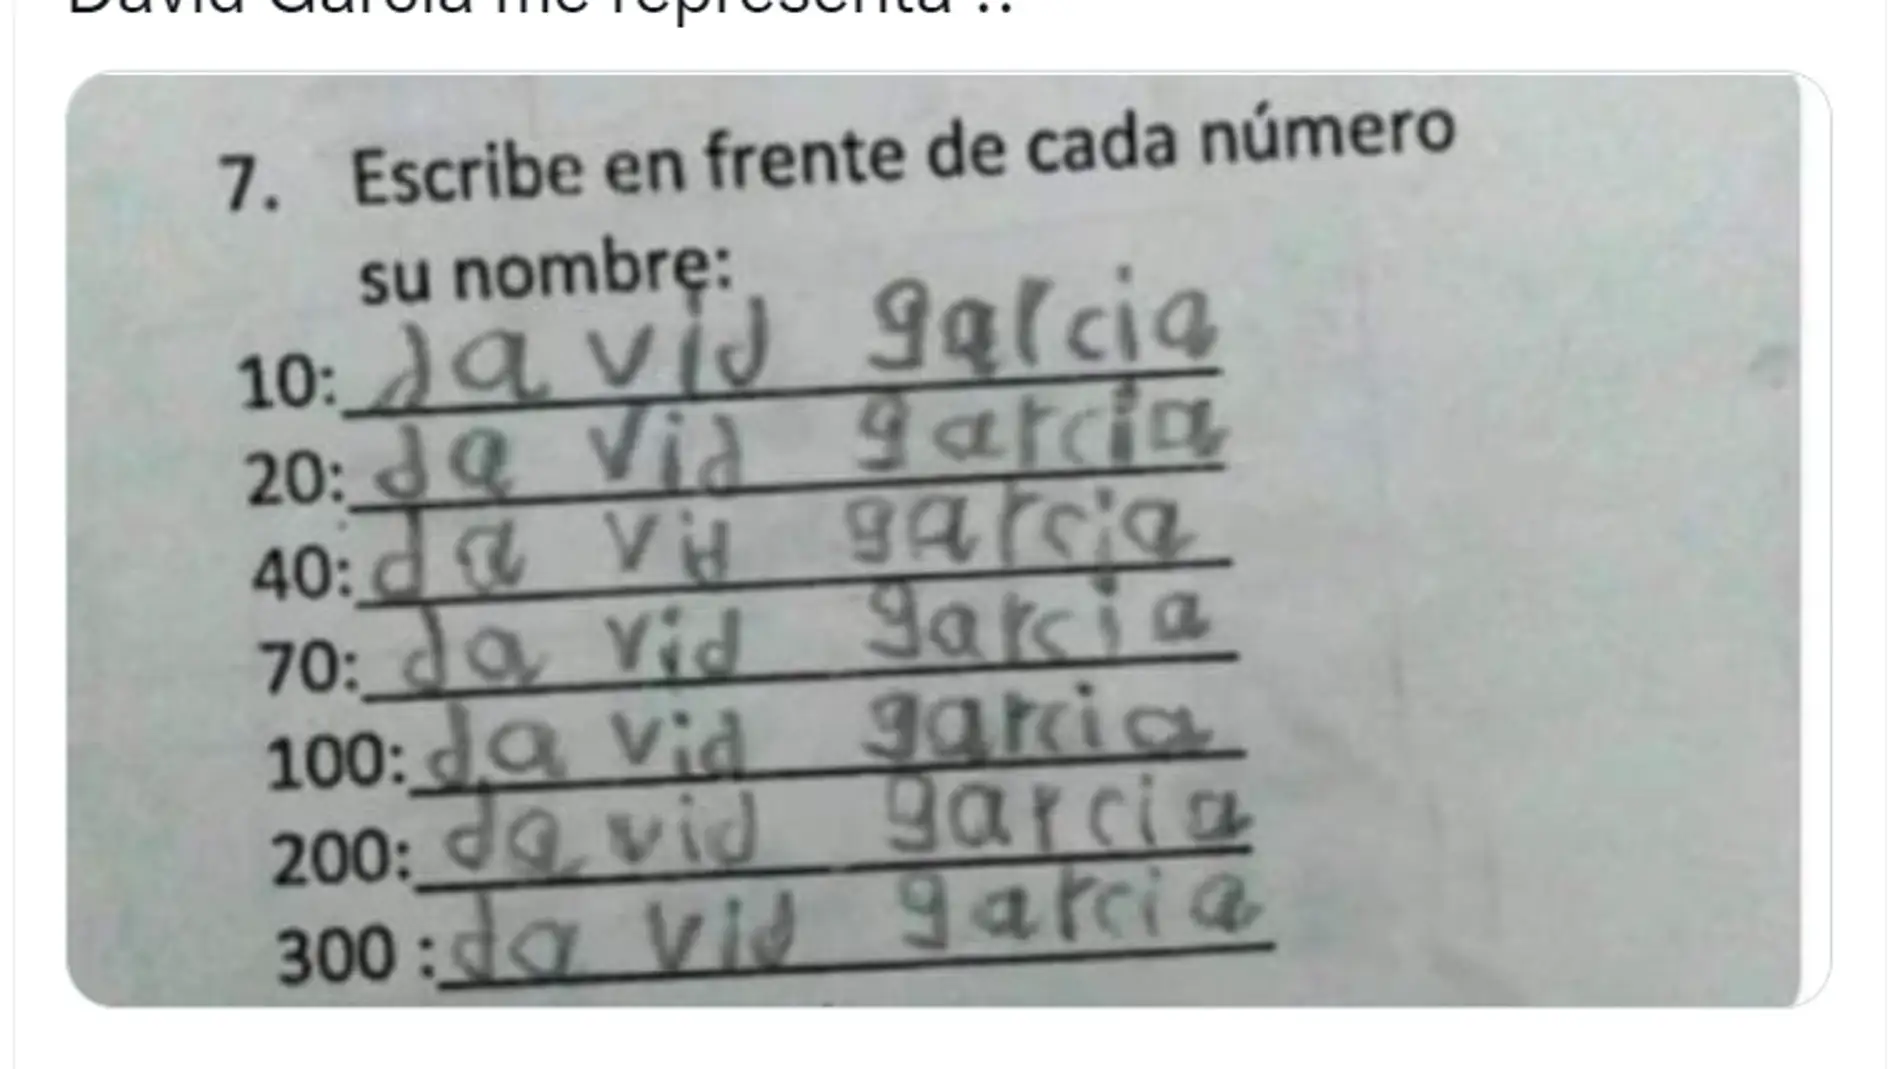 David García me representa !!
7. Escribe en frente de cada número
su nombre:
10: da vid garcia
20: da vid garcia
40: da vid garcia
70: da vid garcia
100: da vid garcia
200: da vid garcia
300 : da vid garcia